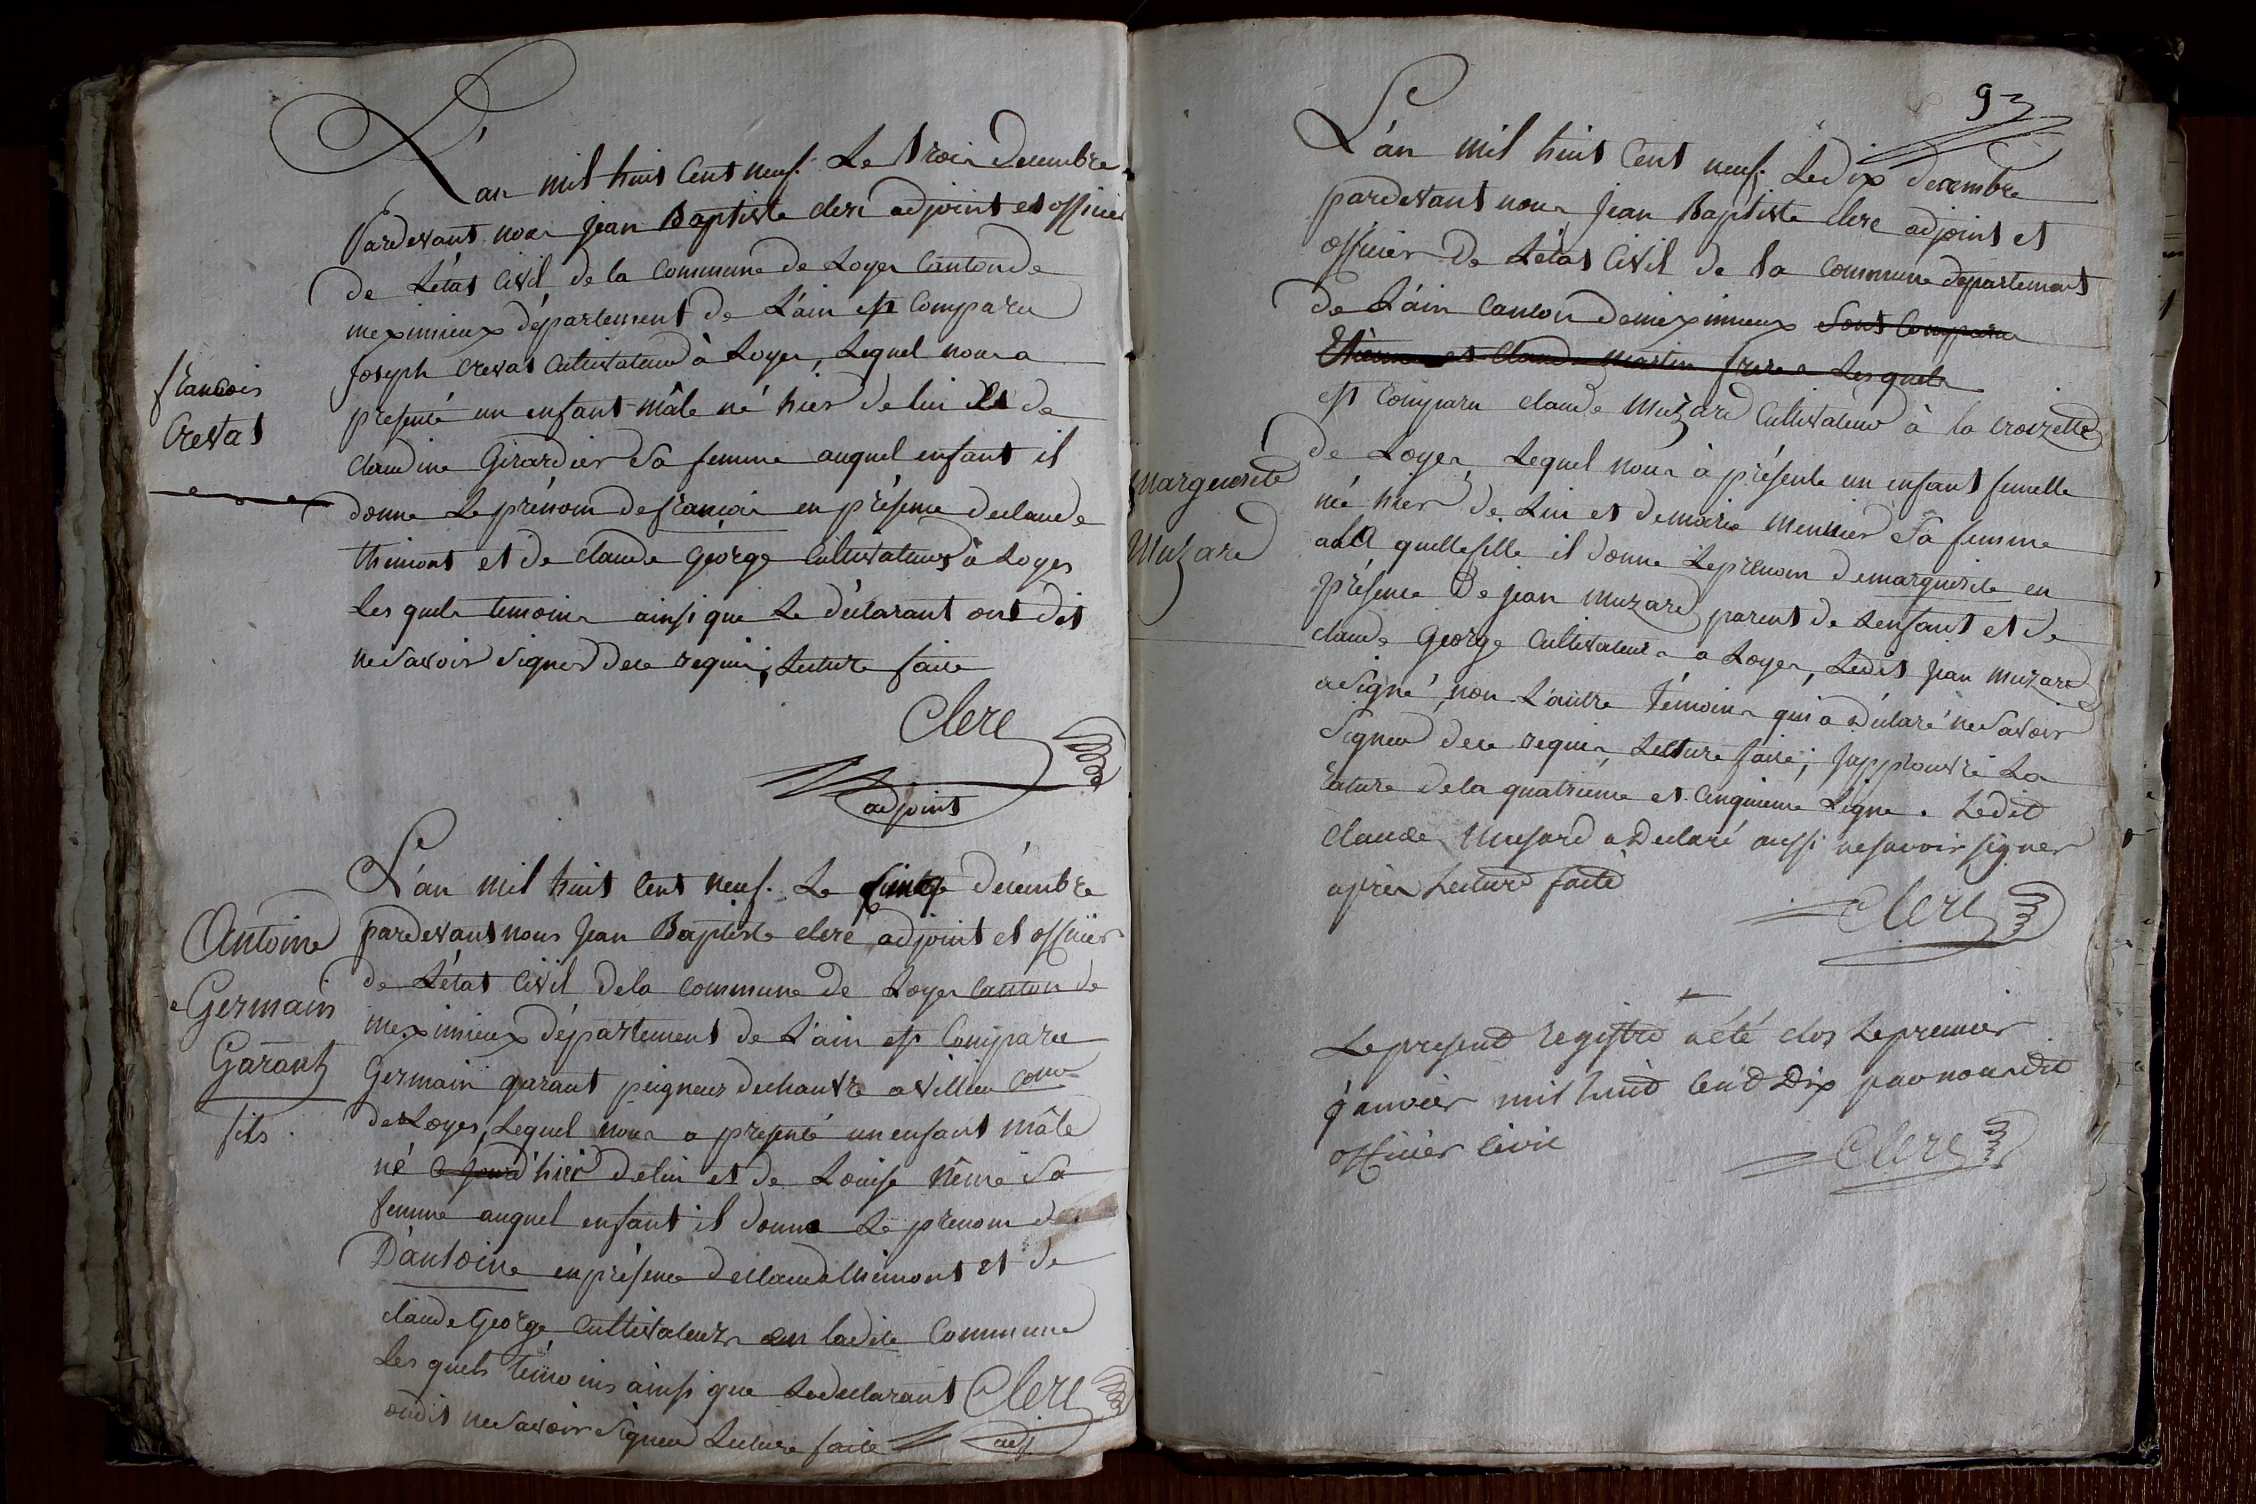 L'an mil huit Cent neuf. Le trois decembre
Pardevant nous Jean Baptiste clerc adjoint et officier
de L'état Civil de la Commune de Loyes Canton de
meximieux département de L'ain est Comparu
Joseph Crevat Cultivateur à Loyes, Lequel nous a
presenté un enfant mâle né hier de lui et de
Claudine Girardier sa femme auquel enfant il
donne Le prénom de francois en présence de claude
thimont et de claude George Cultivateurs à Loyes
Les quels temoins ainsi que Le déclarant ont dit
ne savoir signer de ce requis, Lecture faite
francois
Crevat
Clerc
adjoint
L'an mil huit Cent neuf. Le Cinq décembre
pardevant nous Jean Baptiste clerc adjoint et officier
de L'état Civil de la Commune de Loyes Canton de
meximieux département de L'ain est Comparu
Germain garant peigneur de chanvre a villieu Com.
de Loyes, Lequel nous a presenté un enfant mâle
né ce jourd'hier de lui et de Louise Nême sa
femme auquel enfant il donne Le prenom de
D'antoine en présence de claude thimont et de
claude George Cultivateurs en ladite Commune
Les quels témoins ainsi que Le declarant
ondit ne savoir signer Lecture faite
Antoine
Germain
Garant
fils
Clerc
adj
93
L'an mil huit Cent neuf. Le dix decembre
pardevant nous Jean Baptiste clerc adjoint et
officier de L'état Civil de la Commune departement
de L'ain Canton de meximieux sont Comparu
Etienne et Claude Martin freres Lesquels
est Comparu claude Muzard Cultivateur à la croizette
de Loyes Lequel nous à présenté un enfant femelle
né hier de Lui et de marie Meunier sa femme
a la quelle fille il donne Le prenom de marguerite en
présence de jean muzard parent de L'enfant et de
claude George Cultivateurs a Loyes, Ledit Jean muzard
a signé, non L'autre témoins qui a déclaré ne savoir
signer de ce requis, Lecture faite; J'approuve La
rature de la quatrieme et Cinquieme Ligne. Ledit
Claude Musard a Declaré aussi ne savoir signer
après Lecture faite
Marguerite
Muzard
Clerc
Le present registre a été clos Le premier
janvier mil huit Cent Dix par nous dit
officier Civil
Clerc